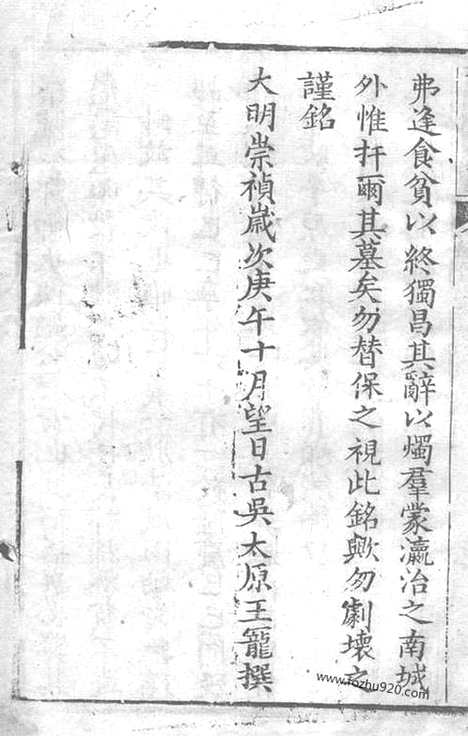 弗逢食貧以終獨昌其辭以燭羣蒙瀛治之南城
外惟扞爾其墓矣勿替保之視此銘歟勿劇壞之
謹銘
大明崇禎歲次庚午十月望日古吳太原王寵撰
www.fozhu920.com